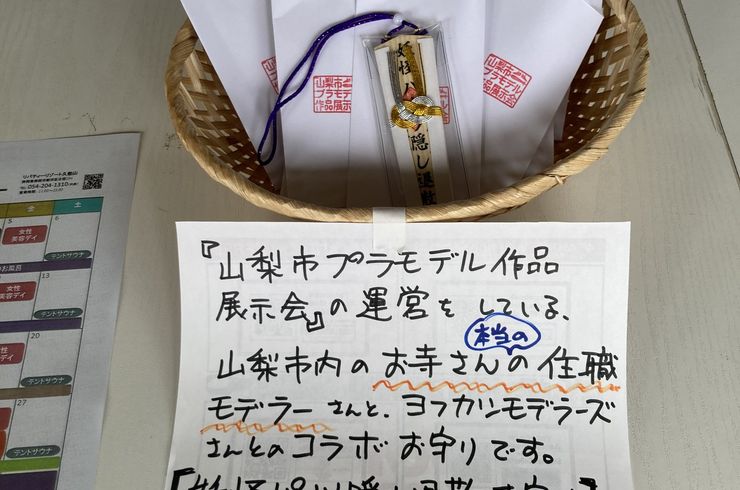 山梨市
プラモデル
作品展示
山梨市
プラモデル
作品展示会
隠し退散
リバティーリゾート久能山
TEL 054-204-1310
金
土
5
6
女性
美容デイ
テントサウナ
お風呂
13
女性
美容デイ
テントサウナ
20
女性
美容デイ
テントサウナ
27
テントサウナ
『山梨市プラモデル作品
展示会』の運営をしている、
本当の
山梨市内のお寺さんの住職
モデラーさんと、ヨフカシモデラーズ
さんとのコラボお守りです。